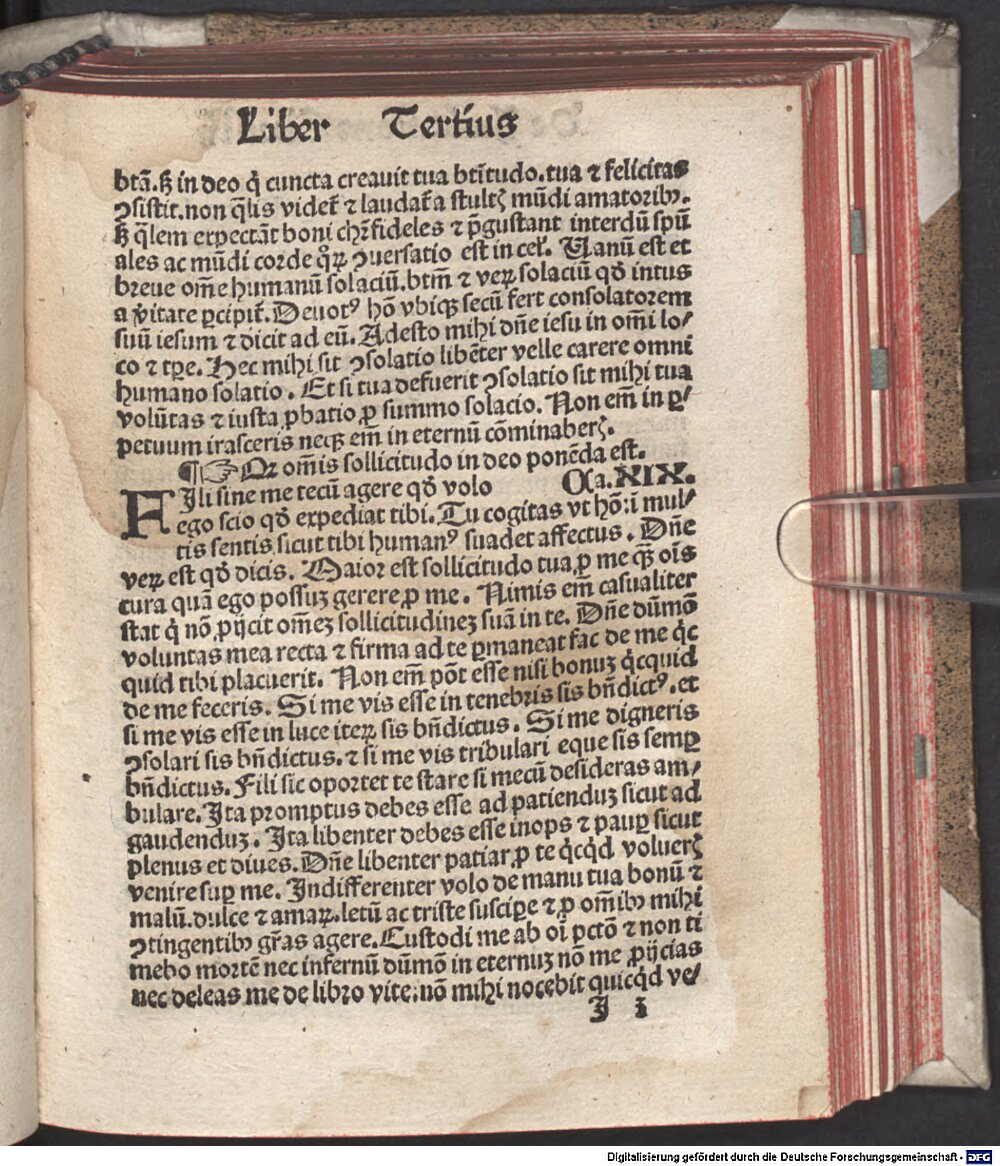 Liber Tertius
btã.ꝫ in deo q̇ cuncta creavit tua btĩtudo.tua ⁊ felicitas
ↄsistit.non q̃lis videt̃ ⁊ laudat̃ a stultꝭ mũdi amatoribꝰ.
ꝫ q̃lem expectãt boni chr̃i fideles ⁊ p̃gustant interdũ spũ
ales ac mũdi corde qͦꝝ ↄuersatio est in cel̃. Uanũ est et
breue om̃e humanũ solaciũ.btm̃ ⁊ veꝝ solaciũ qð intus
a v̓itate ꝑcipit̃. Deuotꝰ hõ vbiqꝫ secũ fert consolatorem
suũ iesum ⁊ dicit ad eũ. Adesto mihi dñe iesu in om̃i lo⸗
co ⁊ tp̃e. Hec mihi sit ↄsolatio libẽter velle carere omni
humano solatio. Et si tua defuerit ↄsolatio sit mihi tua
volũtas ⁊ iusta ꝓbatio ꝓ summo solacio. Non em̃ in ꝑ⸗
petuum irasceris neqꝫ em̃ in eternũ cõminaberꝭ.
¶☞Qꝛ om̃is sollicitudo in deo ponẽda est.
Fili sine me tecũ agere qð volo Ca.XIX.
ego scio qð expediat tibi. Tu cogitas vt hõ:ĩ mul⸗
tis sentis sicut tibi humanꝰ suadet affectus. Dñe
veꝝ est qð dicis. Maior est sollicitudo tua ꝓ me qꝫ̃ oĩs
cura quã ego possuꝫ gerere ꝓ me. Nimis em̃ casualiter
stat q̇ nõ ꝓijcit om̃eꝫ sollicitudineꝫ suã in te. Dñe dũmõ
voluntas mea recta ⁊ firma ad te ꝑmaneat fac de me q̇c
quid tibi placuerit. Non em̃ põt esse nisi bonuꝫ q̇cquid
de me feceris. Si me vis esse in tenebris sis bñdictꝰ.et
si me vis esse in luce iteꝝ sis bñdictus. Si me digneris
ↄsolari sis bñdictus.⁊ si me vis tribulari eque sis semꝑ
bñdictus. Fili sic oportet te stare si mecũ desideras am⸗
bulare. Ita promptus debes esse ad patienduꝫ sicut ad
gaudenduꝫ. Ita libenter debes esse inops ⁊ pauꝑ sicut
plenus et diues. Dñe libenter patiar ꝓ te q̇cq̇d voluerꝭ
venire suꝑ me. Indifferenter volo de manu tua bonũ ⁊
malũ.dulce ⁊ amaꝝ.letũ ac triste susciꝑe ⁊ ꝓ om̃ibꝰ mihi
ↄtingentibꝰ gr̃as agere. Custodi me ab oĩ pctõ ⁊ non ti
mebo mortẽ nec infernũ dũmõ in eternuꝫ nõ me ꝓijcias
nec deleas me de libro vite.nõ mihi nocebit quicq̇d ve⸗
I 3
Digitalisierung gefördert durch die Deutsche Forschungsgemeinschaft - DFG